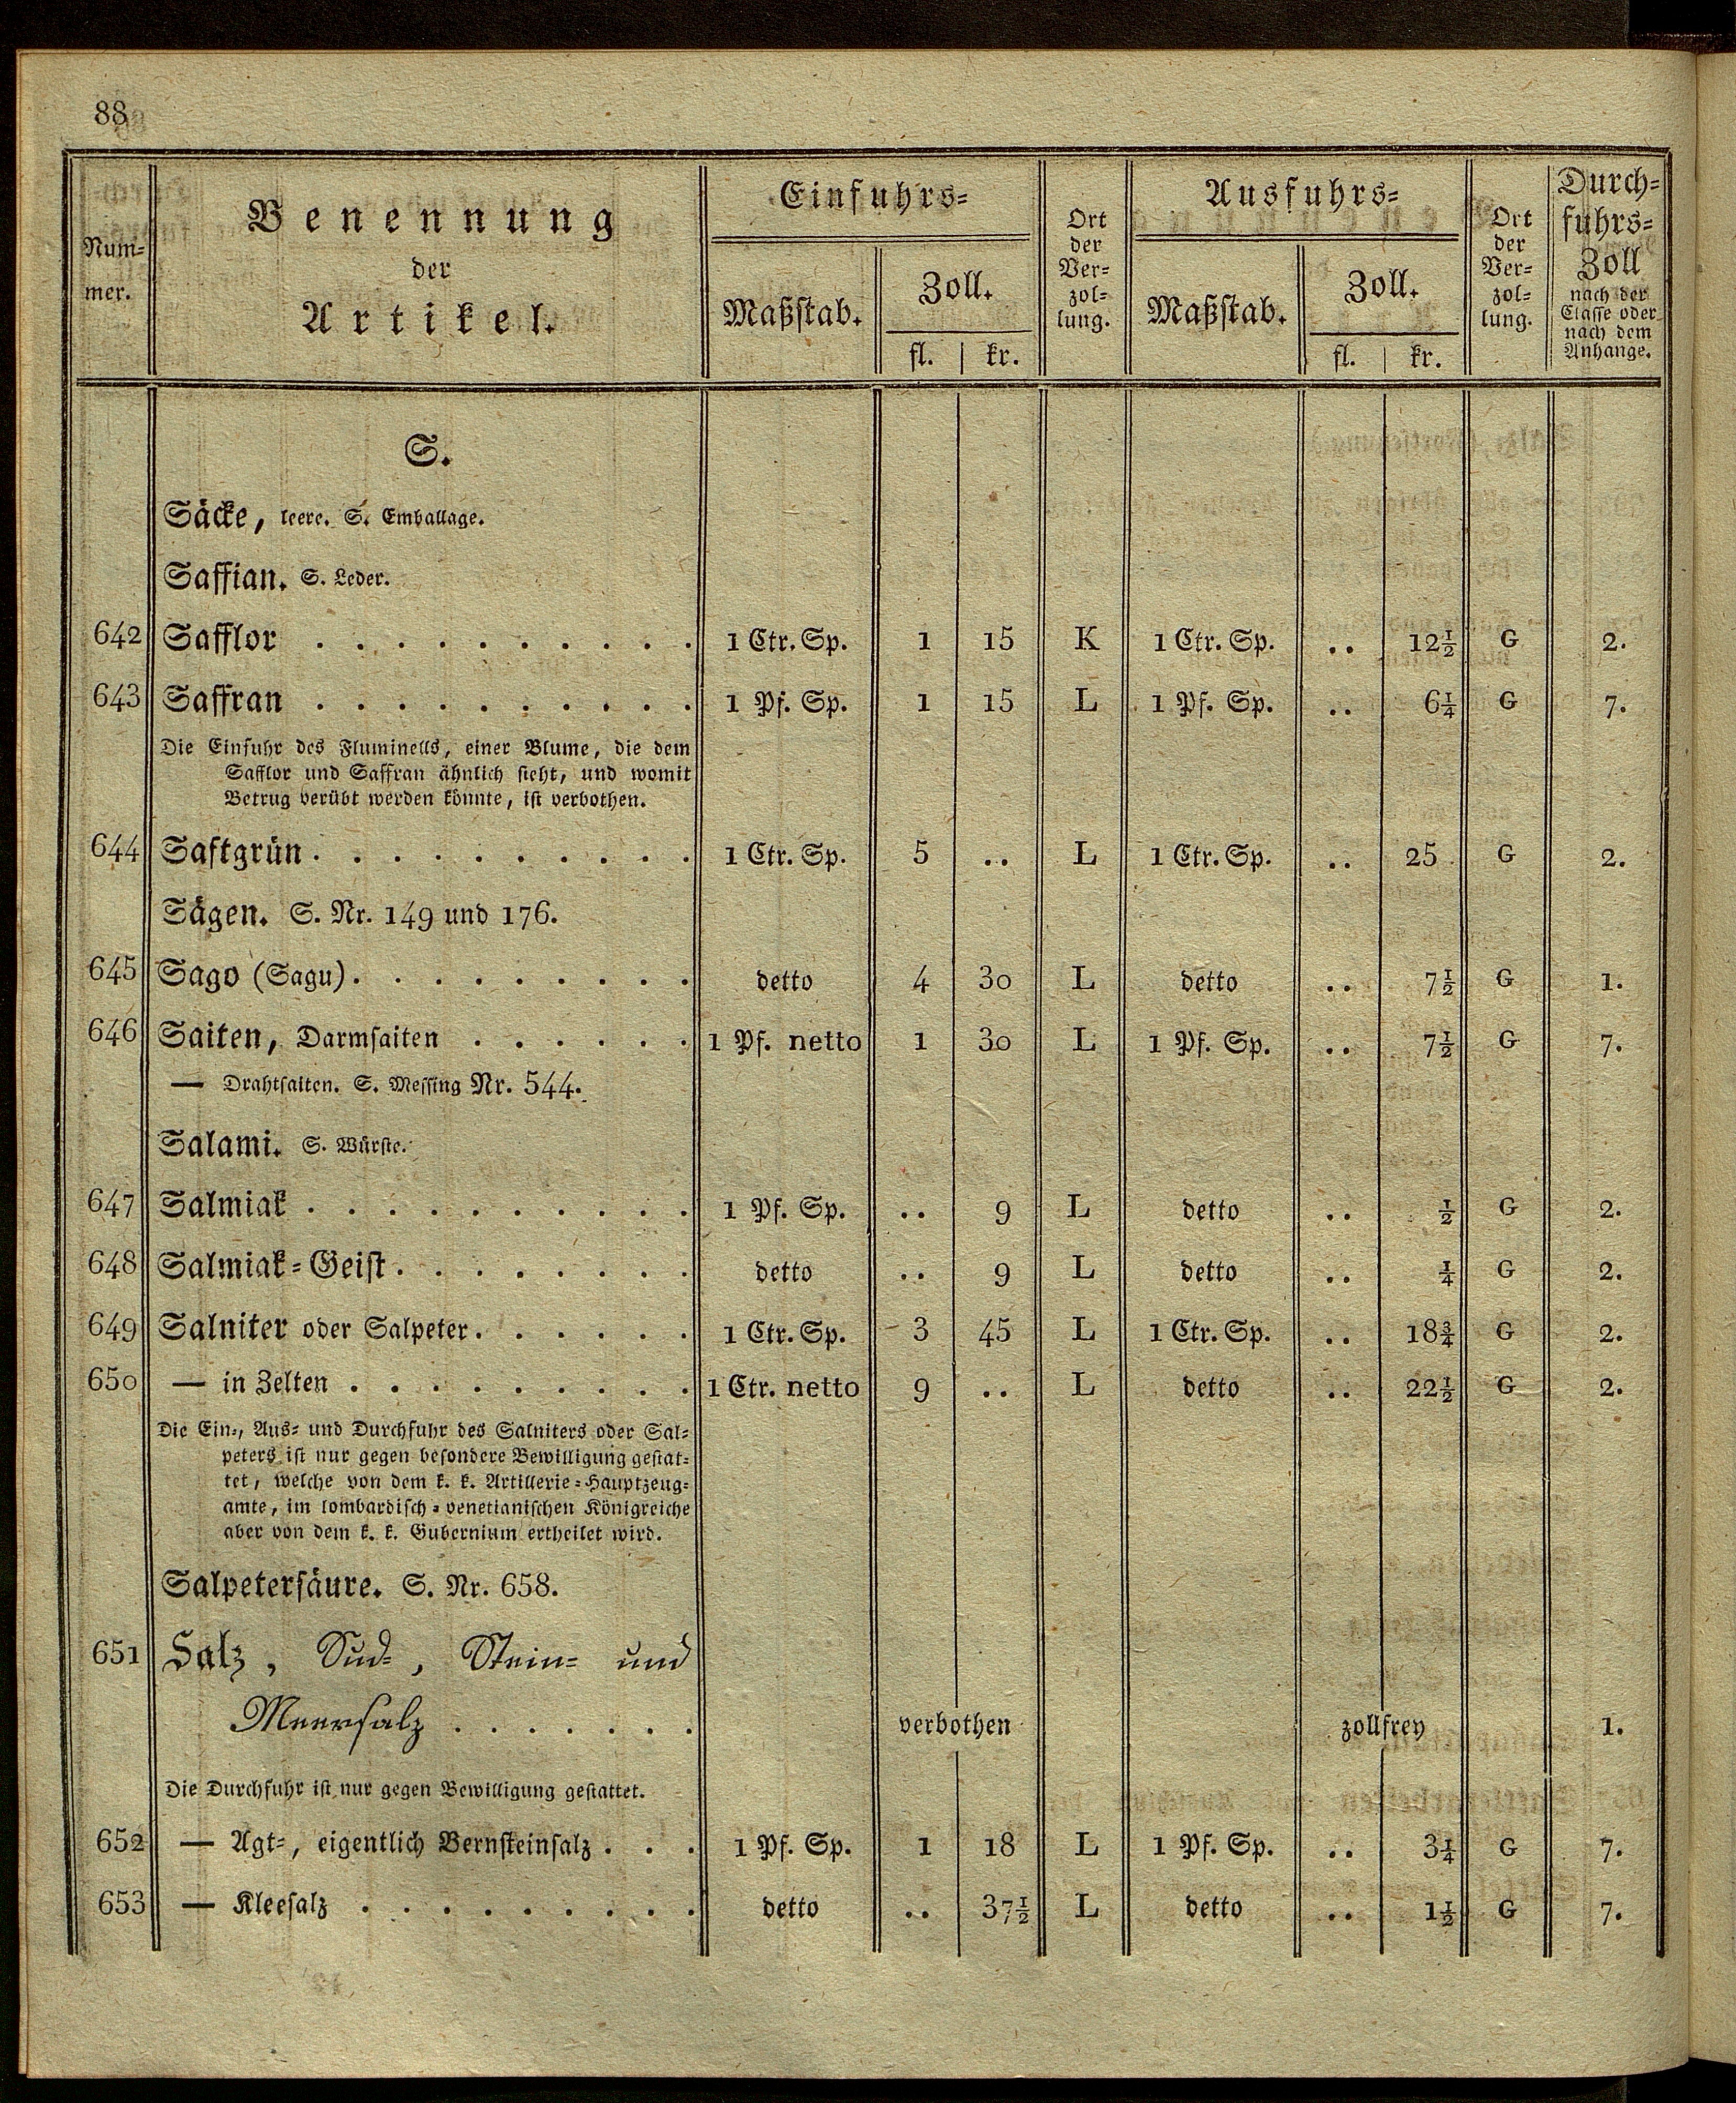 88
Num-
mer.
Benennung
der
Artikel.
Einfuhrs-
Maßstab.
Zoll.
fl. | kr.
Ort
der
Ver-
zol-
lung.
Ausfuhrs-
Maßstab.
Zoll.
fl. | kr.
Ort
der
Ver-
zol-
lung.
Durch-
fuhrs-
Zoll
nach der
Classe oder
nach dem
Anhange.
S.
Säcke, leere. S. Emballage.
Saffian. S. Leder.
642 Safflor . . . . . . . . . . 1 Ctr. Sp. 1 15 K 1 Ctr. Sp. .. 12½ G 2.
643 Saffran . . . . . . . . . . 1 Pf. Sp. 1 15 L 1 Pf. Sp. .. 6¼ G 7.
Die Einfuhr des Fluminells, einer Blume, die dem
Safflor und Saffran ähnlich sieht, und womit
Betrug verübt werden könnte, ist verbothen.
644 Saftgrün . . . . . . . . . . 1 Ctr. Sp. 5 .. L 1 Ctr. Sp. .. 25 G 2.
Sägen. S. Nr. 149 und 176.
645 Sago (Sagu) . . . . . . . . . detto 4 30 L detto .. 7½ G 1.
646 Saiten, Darmsaiten . . . . . . 1 Pf. netto 1 30 L 1 Pf. Sp. .. 7½ G 7.
— Drahtsaiten. S. Messing Nr. 544.
Salami. S. Würste.
647 Salmiak . . . . . . . . . . 1 Pf. Sp. .. 9 L detto .. ½ G 2.
648 Salmiak-Geist . . . . . . . . detto .. 9 L detto .. ¼ G 2.
649 Salniter oder Salpeter . . . . . . 1 Ctr. Sp. 3 45 L 1 Ctr. Sp. .. 18¾ G 2.
650 — in Zelten . . . . . . . . . 1 Ctr. netto 9 .. L detto .. 22½ G 2.
Die Ein-, Aus- und Durchfuhr des Salniters oder Sal-
peters ist nur gegen besondere Bewilligung gestat-
tet, welche von dem k. k. Artillerie-Hauptzeug-
amte, im lombardisch-venetianischen Königreiche
aber von dem k. k. Gubernium ertheilet wird.
Salpetersäure. S. Nr. 658.
651 Salz, Sud-, Stein- und
Meersalz . . . . . . . verbothen zollfrey 1.
Die Durchfuhr ist nur gegen Bewilligung gestattet.
652 — Agt-, eigentlich Bernsteinsalz . . . 1 Pf. Sp. 1 18 L 1 Pf. Sp. .. 3¼ G 7.
653 — Kleesalz . . . . . . . . . detto .. 37½ L detto .. 1½ G 7.